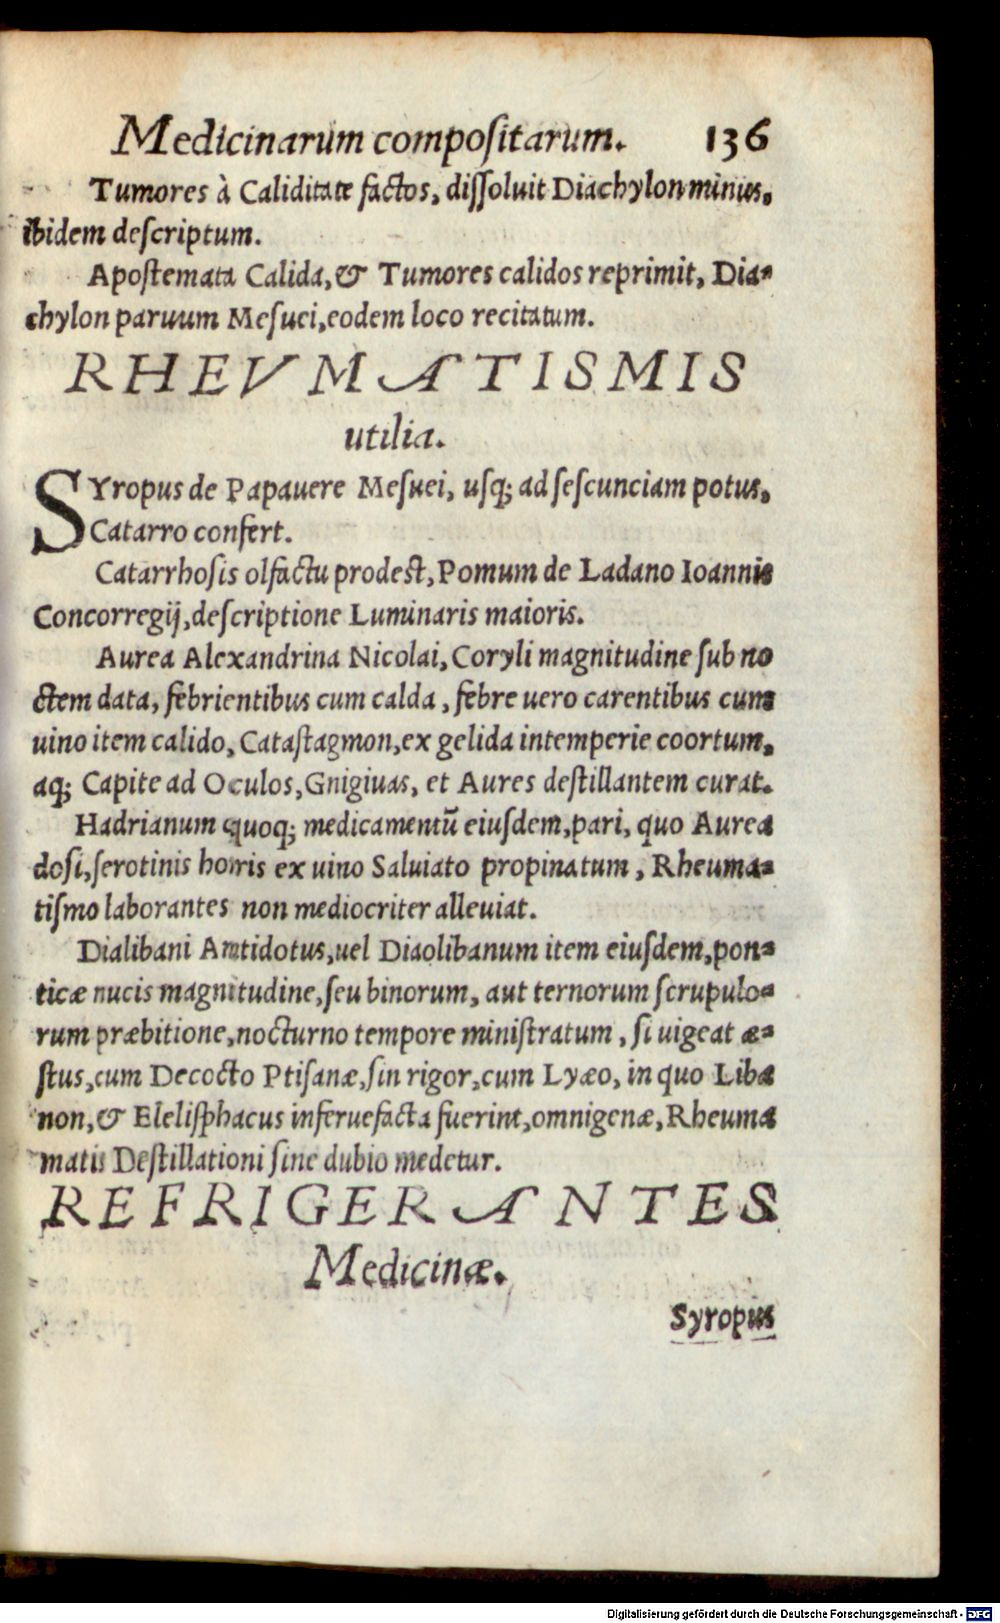 Medicinarum compositarum. 136
Tumores à Caliditate factos, dissoluit Diachylon minus,
ibidem descriptum.
Apostemata Calida, & Tumores calidos reprimit, Dia-
chylon paruum Mesuei, eodem loco recitatum.
RHEVMATISMIS
utilia.
SYropus de Papauere Mesuei, usq; ad sescunciam potus,
Catarro confert.
Catarrhosis olfactu prodest, Pomum de Ladano Ioannis
Concorregij, descriptione Luminaris maioris.
Aurea Alexandrina Nicolai, Coryli magnitudine sub no
ctem data, febrientibus cum calda, febre uero carentibus cum
uino item calido, Catastagmon, ex gelida intemperie coortum,
aq; Capite ad Oculos, Gnigiuas, et Aures destillantem curat.
Hadrianum quoq; medicamentū eiusdem, pari, quo Aurea
dosi, serotinis horris ex uino Saluiato propinatum, Rheuma-
tismo laborantes non mediocriter alleuiat.
Dialibani Antidotus, uel Diaolibanum item eiusdem, pon-
ticæ nucis magnitudine, seu binorum, aut ternorum scrupulo-
rum præbitione, nocturno tempore ministratum, si uigeat æ-
stus, cum Decocto Ptisanæ, sin rigor, cum Lyæo, in quo Liba
non, & Elelisphacus inferuefacta fuerint, omnigenæ, Rheuma
matis Destillationi sine dubio medetur.
REFRIGERANTES
Medicinæ.
Syropus
Digitalisierung gefördert durch die Deutsche Forschungsgemeinschaft - DFG